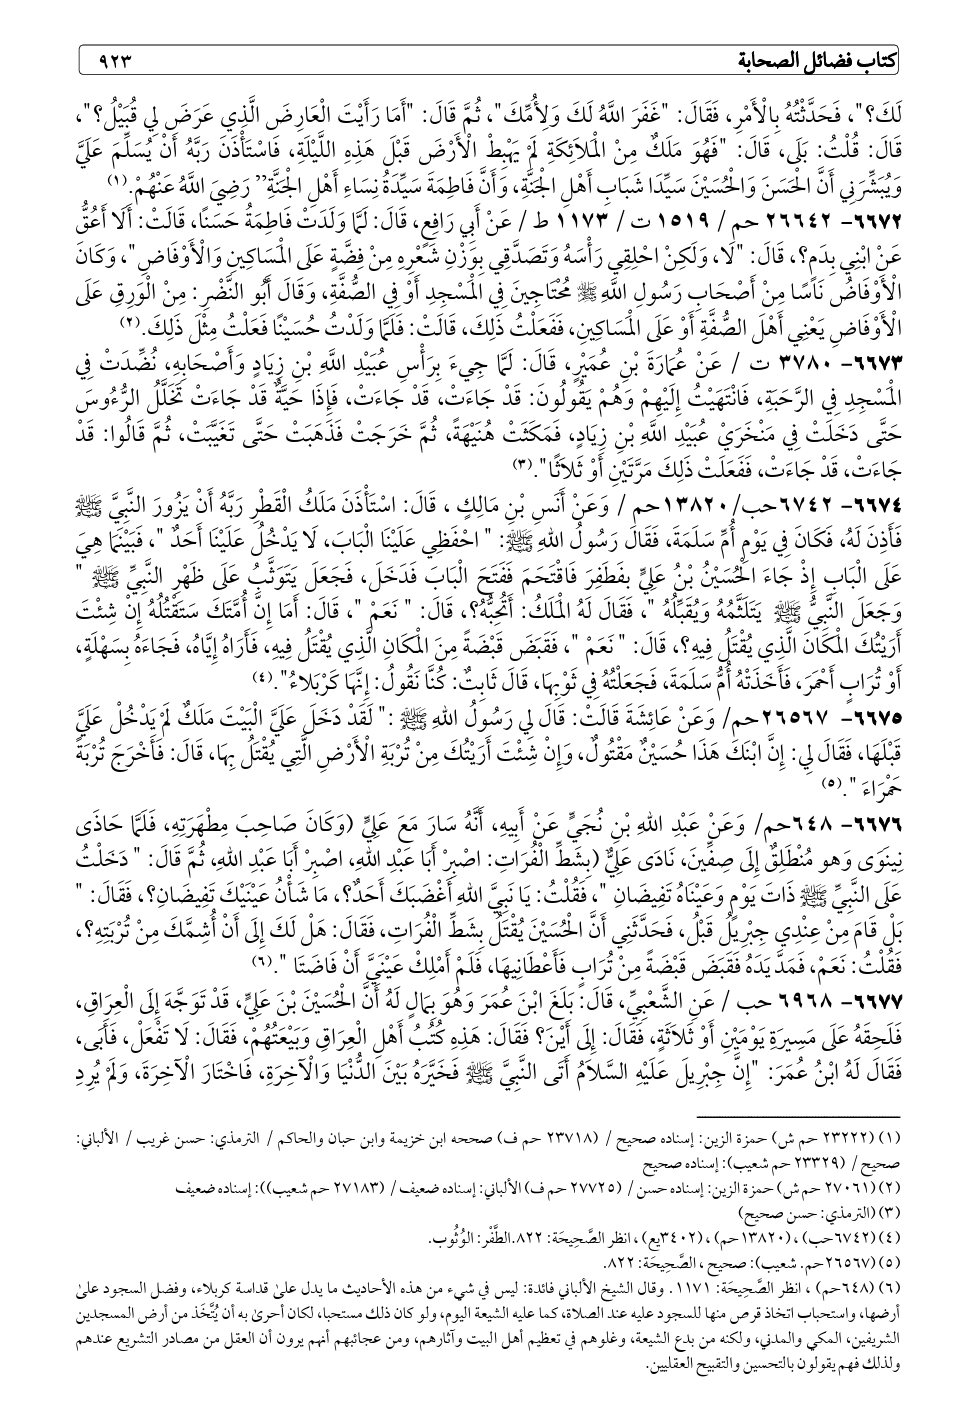 كتاب فضائل الصحابة ٩٢٣
لَكَ؟"، فَحَدَّثْتُهُ بِالْأَمْرِ، فَقَالَ: "غَفَرَ اللَّهُ لَكَ وَلِأُمِّكَ"، ثُمَّ قَالَ: "أَمَا رَأَيْتَ الْعَارِضَ الَّذِي عَرَضَ لِي قُبَيْلُ؟"،
قَالَ: قُلْتُ: بَلَى، قَالَ: "فَهُوَ مَلَكٌ مِنْ الْمَلَائِكَةِ لَمْ يَهْبِطْ الْأَرْضَ قَبْلَ هَذِهِ اللَّيْلَةِ، فَاسْتَأْذَنَ رَبَّهُ أَنْ يُسَلِّمَ عَلَيَّ
وَيُبَشِّرَنِي أَنَّ الْحَسَنَ وَالْحُسَيْنَ سَيِّدَا شَبَابِ أَهْلِ الْجَنَّةِ، وَأَنَّ فَاطِمَةَ سَيِّدَةُ نِسَاءِ أَهْلِ الْجَنَّةِ" رَضِيَ اللَّهُ عَنْهُمْ.(١)
٦٦٧٢- ٢٦٦٤٢ حم / ١٥١٩ ت / ١١٧٣ ط / عَنْ أَبِي رَافِعٍ، قَالَ: لَمَّا وَلَدَتْ فَاطِمَةُ حَسَنًا، قَالَتْ: أَلَا أَعُقُّ
عَنْ ابْنِي بِدَمٍ؟، قَالَ: "لَا، وَلَكِنْ احْلِقِي رَأْسَهُ وَتَصَدَّقِي بِوَزْنِ شَعْرِهِ مِنْ فِضَّةٍ عَلَى الْمَسَاكِينِ وَالْأَوْفَاضِ"، وَكَانَ
الْأَوْفَاضُ نَاسًا مِنْ أَصْحَابِ رَسُولِ اللَّهِ ﷺ مُحْتَاجِينَ فِي الْمَسْجِدِ أَوْ فِي الصُّفَّةِ، وَقَالَ أَبُو النَّضْرِ: مِنْ الْوَرِقِ عَلَى
الْأَوْفَاضِ يَعْنِي أَهْلَ الصُّفَّةِ أَوْ عَلَى الْمَسَاكِينِ، فَفَعَلْتُ ذَلِكَ، قَالَتْ: فَلَمَّا وَلَدْتُ حُسَيْنًا فَعَلْتُ مِثْلَ ذَلِكَ.(٢)
٦٦٧٣- ٣٧٨٠ ت / عَنْ عُمَارَةَ بْنِ عُمَيْرٍ، قَالَ: لَمَّا جِيءَ بِرَأْسِ عُبَيْدِ اللَّهِ بْنِ زِيَادٍ وَأَصْحَابِهِ، نُضِّدَتْ فِي
الْمَسْجِدِ فِي الرَّحَبَةِ، فَانْتَهَيْتُ إِلَيْهِمْ وَهُمْ يَقُولُونَ: قَدْ جَاءَتْ، قَدْ جَاءَتْ، فَإِذَا حَيَّةٌ قَدْ جَاءَتْ تَخَلَّلُ الرُّءُوسَ
حَتَّى دَخَلَتْ فِي مَنْخَرَيْ عُبَيْدِ اللَّهِ بْنِ زِيَادٍ، فَمَكَثَتْ هُنَيْهَةً، ثُمَّ خَرَجَتْ فَذَهَبَتْ حَتَّى تَغَيَّبَتْ، ثُمَّ قَالُوا: قَدْ
جَاءَتْ، قَدْ جَاءَتْ، فَفَعَلَتْ ذَلِكَ مَرَّتَيْنِ أَوْ ثَلَاثًا".(٣)
٦٦٧٤- ٦٧٤٢حب/١٣٨٢٠حم / وَعَنْ أَنَسِ بْنِ مَالِكٍ ، قَالَ: اسْتَأْذَنَ مَلَكُ الْقَطْرِ رَبَّهُ أَنْ يَزُورَ النَّبِيَّ ﷺ
فَأَذِنَ لَهُ، فَكَانَ فِي يَوْمِ أُمِّ سَلَمَةَ، فَقَالَ رَسُولُ اللهِ ﷺ: " احْفَظِي عَلَيْنَا الْبَابَ، لَا يَدْخُلُ عَلَيْنَا أَحَدٌ "، فَبَيْنَمَا هِيَ
عَلَى الْبَابِ إِذْ جَاءَ الْحُسَيْنُ بْنُ عَلِيٍّ بِفَطَفِرَ فَاقْتَحَمَ فَفَتَحَ الْبَابَ فَدَخَلَ، فَجَعَلَ يَتَوَثَّبُ عَلَى ظَهْرِ النَّبِيِّ ﷺ "
وَجَعَلَ النَّبِيُّ ﷺ يَتَلَثَّمُهُ وَيُقَبِّلُهُ "، فَقَالَ لَهُ الْمَلَكُ: أَتُحِبُّهُ؟، قَالَ: " نَعَمْ "، قَالَ: أَمَا إِنَّ أُمَّتَكَ سَتَقْتُلُهُ إِنْ شِئْتَ
أَرَيْتُكَ الْمَكَانَ الَّذِي يُقْتَلُ فِيهِ؟، قَالَ: " نَعَمْ "، فَقَبَضَ قَبْضَةً مِنَ الْمَكَانِ الَّذِي يُقْتَلُ فِيهِ، فَأَرَاهُ إِيَّاهُ، فَجَاءَهُ بِسَهْلَةٍ،
أَوْ تُرَابٍ أَحْمَرَ، فَأَخَذَتْهُ أُمُّ سَلَمَةَ، فَجَعَلْتُهُ فِي ثَوْبِهَا، قَالَ ثَابِتٌ: كُنَّا نَقُولُ: إِنَّهَا كَرْبَلَاءُ".(٤)
٦٦٧٥- ٢٦٥٦٧حم/ وَعَنْ عَائِشَةَ قَالَتْ: قَالَ لِي رَسُولُ اللهِ ﷺ :" لَقَدْ دَخَلَ عَلَيَّ الْبَيْتَ مَلَكٌ لَمْ يَدْخُلْ عَلَيَّ
قَبْلَهَا، فَقَالَ لِي: إِنَّ ابْنَكَ هَذَا حُسَيْنٌ مَقْتُولٌ، وَإِنْ شِئْتَ أَرَيْتُكَ مِنْ تُرْبَةِ الْأَرْضِ الَّتِي يُقْتَلُ بِهَا، قَالَ: فَأَخْرَجَ تُرْبَةً
حَمْرَاءَ ".(٥)
٦٦٧٦- ٦٤٨حم/ وَعَنْ عَبْدِ اللهِ بْنِ نُجَيٍّ عَنْ أَبِيهِ، أَنَّهُ سَارَ مَعَ عَلِيٍّ (وَكَانَ صَاحِبَ مِطْهَرَتِهِ، فَلَمَّا حَاذَى
نِينَوَى وَهو مُنْطَلِقٌ إِلَى صِفِّينَ، نَادَى عَلِيٌّ (بِشَطِّ الْفُرَاتِ: اصْبِرْ أَبَا عَبْدِ اللهِ، اصْبِرْ أَبَا عَبْدِ اللهِ، ثُمَّ قَالَ: " دَخَلْتُ
عَلَى النَّبِيِّ ﷺ ذَاتَ يَوْمٍ وَعَيْنَاهُ تَفِيضَانِ "، فَقُلْتُ: يَا نَبِيَّ اللهِ أَغْضَبَكَ أَحَدٌ؟، مَا شَأْنُ عَيْنَيْكَ تَفِيضَانِ؟، فَقَالَ: "
بَلْ قَامَ مِنْ عِنْدِي جِبْرِيلُ قَبْلُ، فَحَدَّثَنِي أَنَّ الْحُسَيْنَ يُقْتَلُ بِشَطِّ الْفُرَاتِ، فَقَالَ: هَلْ لَكَ إِلَى أَنْ أُشِمَّكَ مِنْ تُرْبَتِهِ؟،
فَقُلْتُ: نَعَمْ، فَمَدَّ يَدَهُ فَقَبَضَ قَبْضَةً مِنْ تُرَابٍ فَأَعْطَانِيهَا، فَلَمْ أَمْلِكْ عَيْنَيَّ أَنْ فَاضَتَا ".(٦)
٦٦٧٧- ٦٩٦٨ حب / عَنِ الشَّعْبِيِّ، قَالَ: بَلَغَ ابْنَ عُمَرَ وَهُوَ بِمَالٍ لَهُ أَنَّ الْحُسَيْنَ بْنَ عَلِيٍّ، قَدْ تَوَجَّهَ إِلَى الْعِرَاقِ،
فَلَحِقَهُ عَلَى مَسِيرَةِ يَوْمَيْنِ أَوْ ثَلَاثَةٍ، فَقَالَ: إِلَى أَيْنَ؟ فَقَالَ: هَذِهِ كُتُبُ أَهْلِ الْعِرَاقِ وَبَيْعَتُهُمْ، فَقَالَ: لَا تَفْعَلْ، فَأَبَى،
فَقَالَ لَهُ ابْنُ عُمَرَ: "إِنَّ جِبْرِيلَ عَلَيْهِ السَّلَامُ أَتَى النَّبِيَّ ﷺ فَخَيَّرَهُ بَيْنَ الدُّنْيَا وَالْآخِرَةِ، فَاخْتَارَ الْآخِرَةَ، وَلَمْ يُرِدِ
(١) (٢٣٢٢٢ حم ش) حمزة الزين: إسناده صحيح / (٢٣٧١٨ حم ف) صححه ابن خزيمة وابن حبان والحاكم / الترمذي: حسن غريب / الألباني:
صحيح / (٢٣٣٢٩ حم شعيب): إسناده صحيح
(٢) (٢٧٠٦١ حم ش) حمزة الزين: إسناده حسن / (٢٧٧٢٥ حم ف) الألباني: إسناده ضعيف / (٢٧١٨٣ حم شعيب)): إسناده ضعيف
(٣) (الترمذي: حسن صحيح)
(٤) (٦٧٤٢حب) ، (١٣٨٢٠حم)، (٣٤٠٢يع) ، انظر الصَّحِيحَة: ٨٢٢.الطَّفْر: الوُثُوب.
(٥) (٢٦٥٦٧حم. شعيب): صحيح ، الصَّحِيحَة: ٨٢٢.
(٦) (٦٤٨حم) ، انظر الصَّحِيحَة: ١١٧١. وقال الشيخ الألباني فائدة: ليس في شيء من هذه الأحاديث ما يدل على قداسة كربلاء، وفضل السجود على
أرضها، واستحباب اتخاذ قرص منها للسجود عليه عند الصلاة، كما عليه الشيعة اليوم، ولو كان ذلك مستحبا، لكان أحرى به أن يُتَّخَذ من أرض المسجدين
الشريفين، المكي والمدني، ولكنه من بدع الشيعة، وغلوهم في تعظيم أهل البيت وآثارهم، ومن عجائبهم أنهم يرون أن العقل من مصادر التشريع عندهم
ولذلك فهم يقولون بالتحسين والتقبيح العقليين.